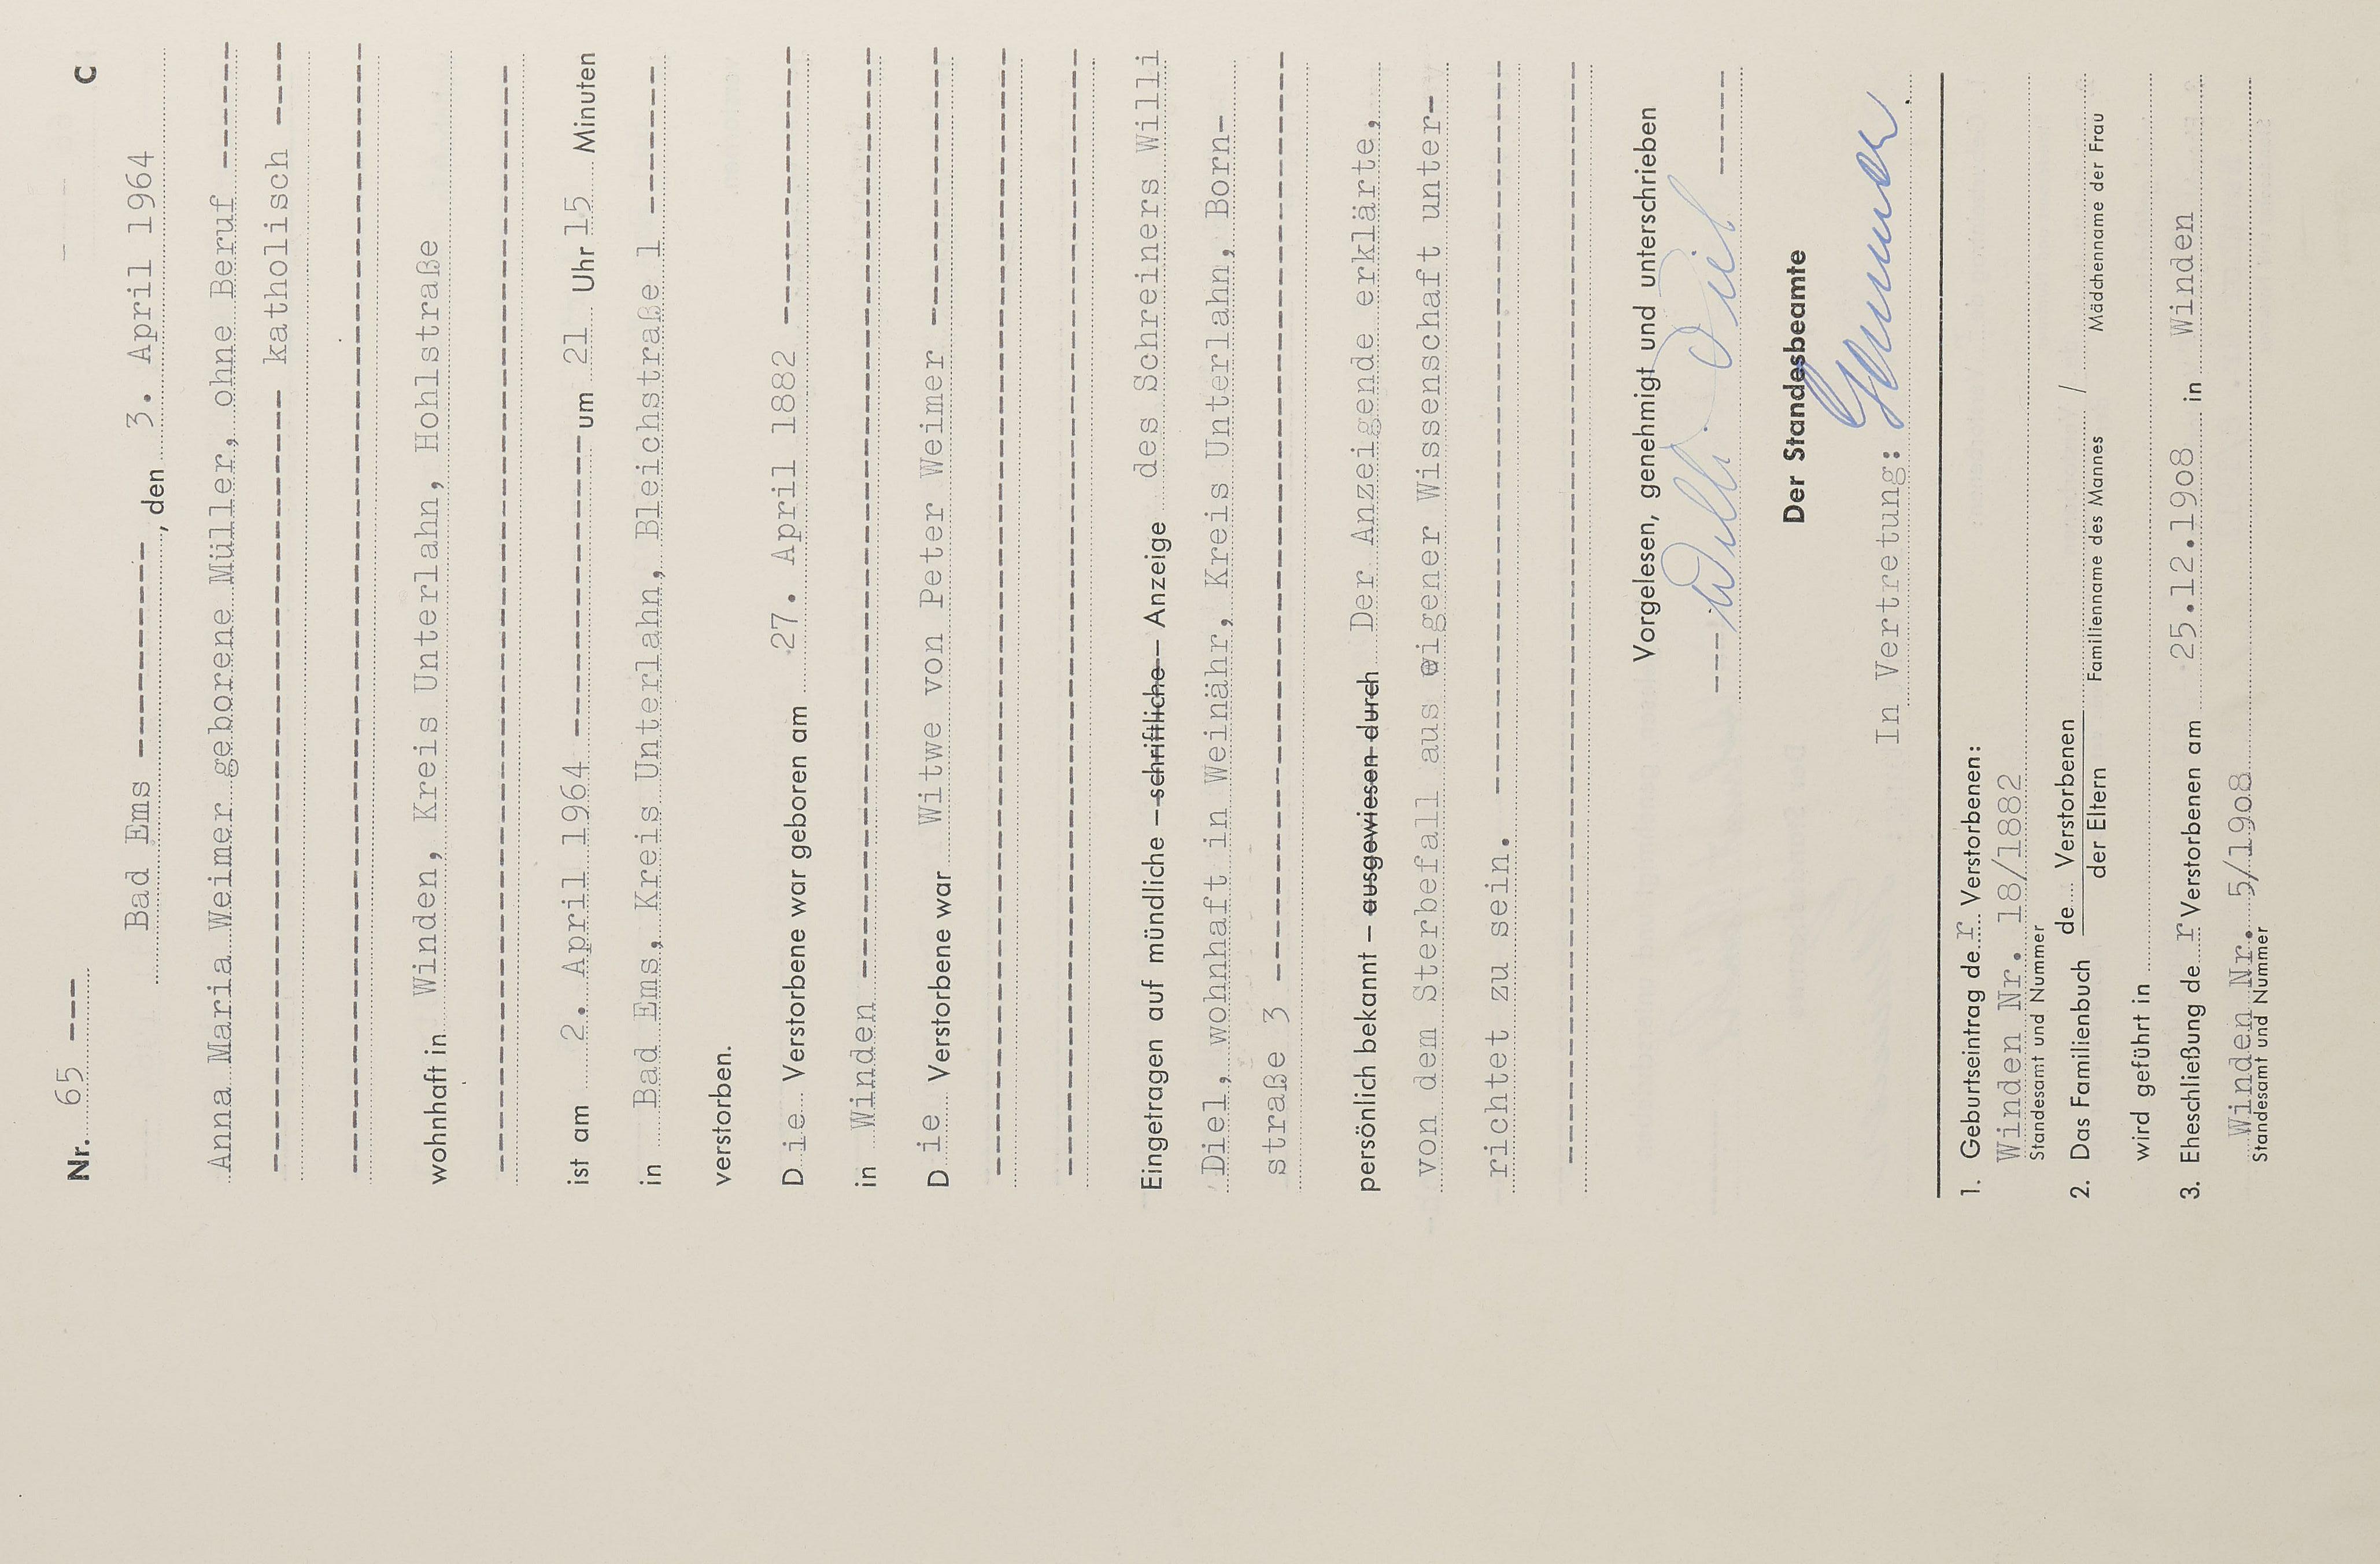 Nr. 65 --- C
Bad Ems ----------, den 3. April 1964
Anna Maria Weimer geborene Müller, ohne Beruf ------
---------- katholisch ----
wohnhaft in Winden, Kreis Unterlahn, Hohlstraße
ist am 2. April 1964 ---------- um 21 Uhr 15 Minuten
in Bad Ems, Kreis Unterlahn, Bleichstraße 1 -------
verstorben.
Die Verstorbene war geboren am 27. April 1882 ----------
in Winden ----------
Die Verstorbene war Witwe von Peter Weimer ----------
Eingetragen auf mündliche – schriftliche – Anzeige des Schreiners Willi
Diel, wohnhaft in Weinähr, Kreis Unterlahn, Born-
straße 3 ----------
persönlich bekannt – ausgewiesen durch Der Anzeigende erklärte,
von dem Sterbefall aus eigener Wissenschaft unter-
richtet zu sein. ----------
Vorgelesen, genehmigt und unterschrieben
--- Willi Diel -----
Der Standesbeamte
In Vertretung:
1. Geburtseintrag der Verstorbenen:
Winden Nr. 18/1882
Standesamt und Nummer
2. Das Familienbuch de Verstorbenen /
der Eltern Familienname des Mannes Mädchenname der Frau
wird geführt in
3. Eheschließung der Verstorbenen am 25.12.1908 in Winden
Winden Nr. 5/1908
Standesamt und Nummer